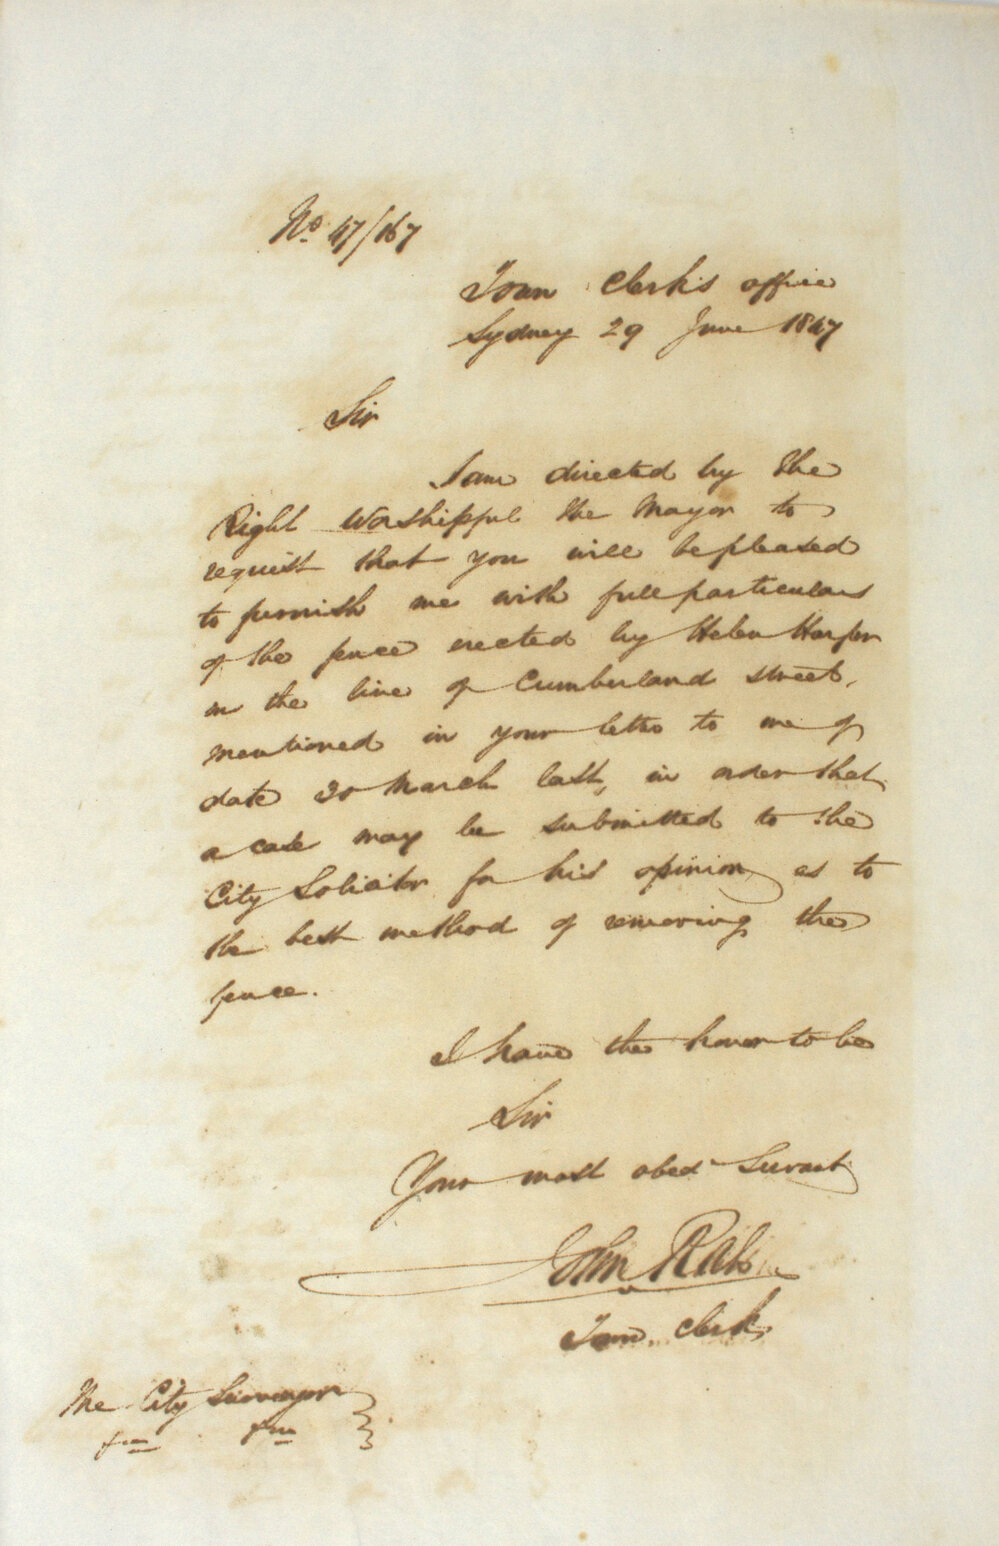 No. 47/167
Town Clerk's office
Sydney 29 June 1847
Sir
I am directed by the
Right Worshipful the Mayor to
request that you will be pleased
to furnish me with full particulars
of the fence erected by Helen Harper
in the line of Cumberland Street,
mentioned in your letter to me of
date 30 March last, in order that
a case may be submitted to the
City Solicitor for his opinion as to
the best method of removing the
fence.
I have the honor to be
Sir
Your most obed Servant
John Rae
Town Clerk
The City Surveyor